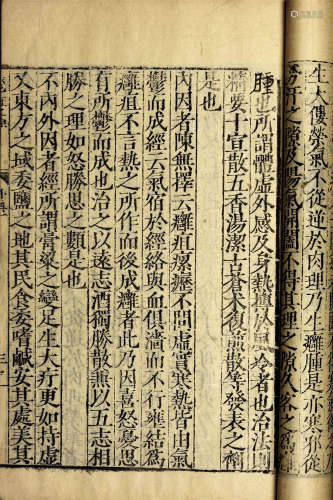 生大僂榮氣不從逆於肉理乃生癰是亦寒邪從
腫
是也所謂體虛外感及身熱
精要十宣散五香湯潔古蒼术復煎散等發表之劑
是也
内因者陳無擇云癰疽瘰癧不問虚實寒熱皆由氣
鬱而成經云氣宿於經絡與血俱濇而不行壅結爲
癰疽不言熱之所作而後成癰者此乃因喜怒憂思
有所鬱而成也治之以遠志酒獨勝散兼以五志相
勝之理如怒勝思之類是也
不内外因者經所謂膏粱之變足生大疔更如持虚
又東方之域委鹽之地其民食委嗜鹹安其處美其